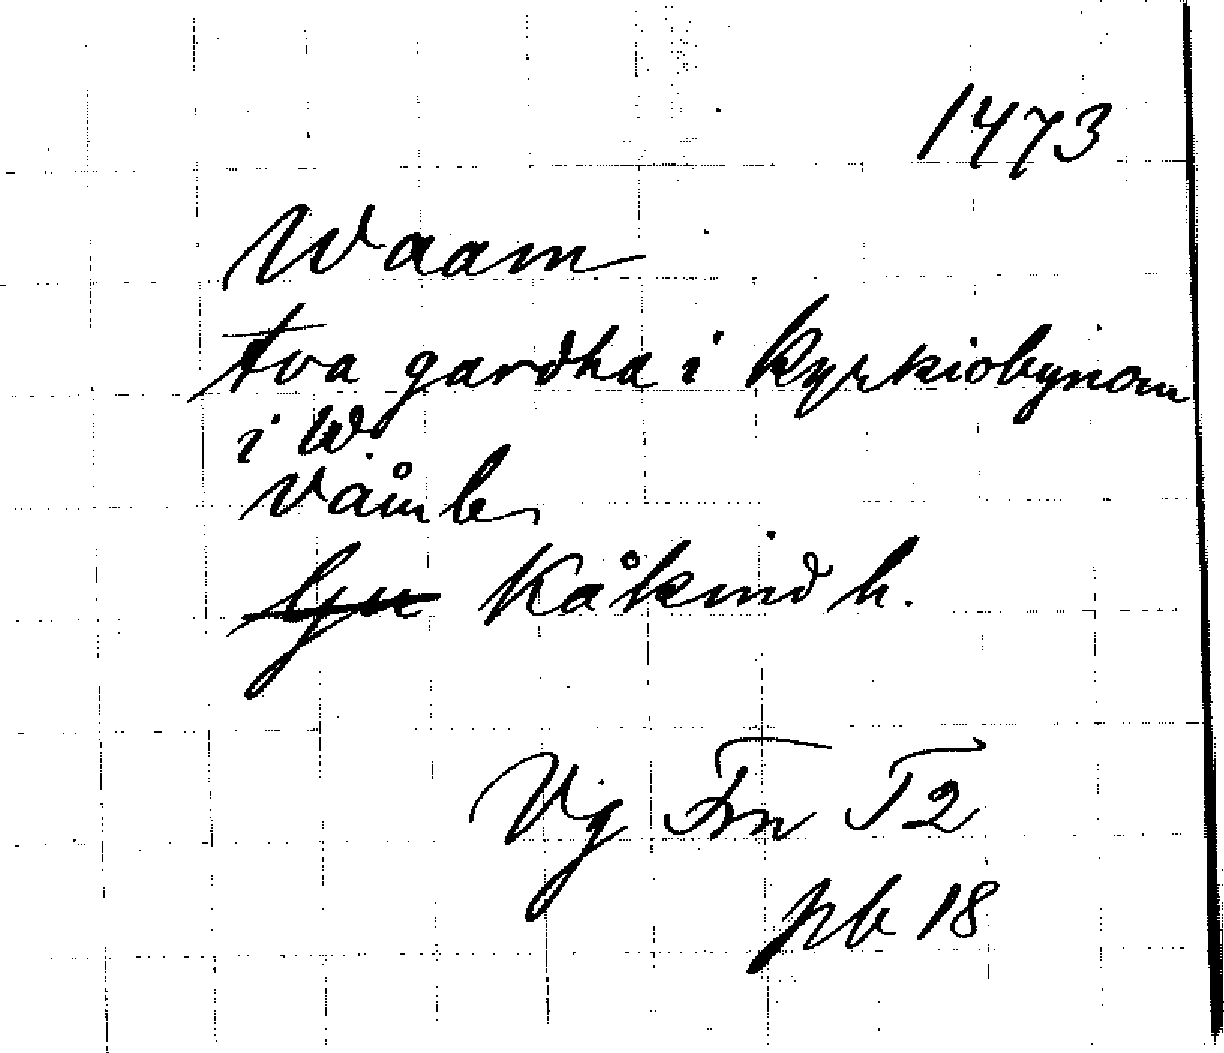 1473
Waam
tva gardha i kyrkiobynom
i W.
Våmb
Kåkind h.
Vg Fm T2
pb 18